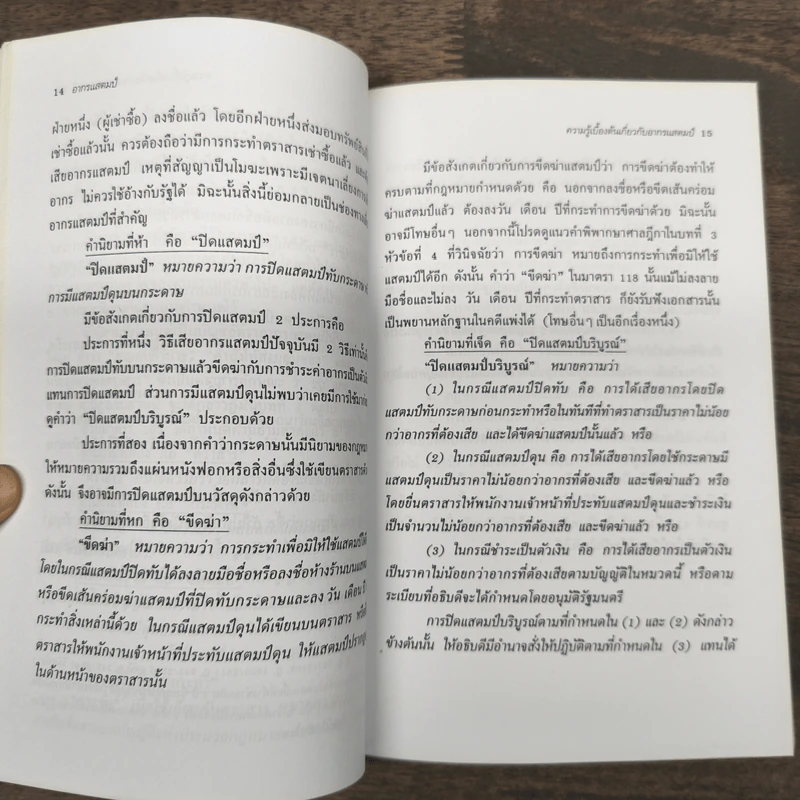 14 อากรแสตมป์
ฝ่ายหนึ่ง (ผู้เช่าซื้อ) ลงชื่อแล้ว โดยอีกฝ่ายหนึ่งส่งมอบทรัพย์สิน
เช่าซื้อแล้วนั้น ควรต้องถือว่ามีการกระทำตราสารเช่าซื้อแล้ว
เสียอากรแสตมป์ เหตุที่สัญญาเป็นโมฆะเพราะมีเจตนาเลี่ยง
อากร ไม่ควรใช้อ้างกับรัฐได้ มิฉะนั้นสิ่งนี้ย่อมกลายเป็นช่องทาง
อากรแสตมป์ที่สำคัญ
คำนิยามที่ห้า คือ “ปิดแสตมป์”
“ปิดแสตมป์” หมายความว่า การปิดแสตมป์ทับกระดาษ
การมีแสตมป์ดุนบนกระดาษ
มีข้อสังเกตเกี่ยวกับการปิดแสตมป์ 2 ประการคือ
ประการที่หนึ่ง วิธีเสียอากรแสตมป์ปัจจุบันมี 2 วิธีเท่านั้น
การปิดแสตมป์ทับบนกระดาษแล้วขีดฆ่ากับการชำระค่าอากรเป็นตัว
แทนการปิดแสตมป์ ส่วนการมีแสตมป์ดุนไม่พบว่าเคยมีการใช้มา
ดูคำว่า “ปิดแสตมป์บริบูรณ์” ประกอบด้วย
ประการที่สอง เนื่องจากคำว่ากระดาษนั้นมีนิยามของกฎหมาย
ให้หมายความรวมถึงแผ่นหนังฟอกหรือสิ่งอื่นซึ่งใช้เขียนตราสาร
ดังนั้น จึงอาจมีการปิดแสตมป์บนวัสดุดังกล่าวด้วย
คำนิยามที่หก คือ “ขีดฆ่า”
“ขีดฆ่า” หมายความว่า การกระทำเพื่อมิให้ใช้แสตมป์ได้
โดยในกรณีแสตมป์ปิดทับได้ลงลายมือชื่อหรือลงชื่อห้างร้านบนแสตมป์
หรือขีดเส้นคร่อมฆ่าแสตมป์ที่ปิดทับกระดาษและลง วัน เดือน ปี
กระทำสิ่งเหล่านี้ด้วย ในกรณีแสตมป์ดุนได้เขียนบนตราสาร หรือ
ตราสารให้พนักงานเจ้าหน้าที่ประทับแสตมป์ดุน ให้แสตมป์ปรากฏ
ในด้านหน้าของตราสารนั้น
ความรู้เบื้องต้นเกี่ยวกับอากรแสตมป์ 15
มีข้อสังเกตเกี่ยวกับการขีดฆ่าแสตมป์ว่า การขีดฆ่าต้องทำให้
ครบตามที่กฎหมายกำหนดด้วย คือ นอกจากลงชื่อหรือขีดเส้นคร่อม
ฆ่าแสตมป์แล้ว ต้องลงวัน เดือน ปีที่กระทำการขีดฆ่าด้วย มิฉะนั้น
อาจมีโทษอื่นๆ นอกจากนี้โปรดดูแนวคำพิพากษาศาลฎีกาในบทที่ 3
หัวข้อที่ 4 ที่วินิจฉัยว่า การขีดฆ่า หมายถึงการกระทำเพื่อมิให้ใช้
แสตมป์ได้อีก ดังนั้น คำว่า “ขีดฆ่า”ในมาตรา 118 นั้นแม้ไม่ลงลาย
มือชื่อและไม่ลง วัน เดือน ปีที่กระทำตราสาร ก็ยังรับฟังเอกสารนั้น
เป็นพยานหลักฐานในคดีแพ่งได้ (โทษอื่นๆ เป็นอีกเรื่องหนึ่ง)
คำนิยามที่เจ็ด คือ “ปิดแสตมป์บริบูรณ์”
“ปิดแสตมป์บริบูรณ์” หมายความว่า
(1) ในกรณีแสตมป์ปิดทับ คือ การได้เสียอากรโดยปิด
แสตมป์ทับกระดาษก่อนกระทำหรือในทันทีที่ทำตราสารเป็นราคาไม่น้อย
กว่าอากรที่ต้องเสีย และได้ขีดฆ่าแสตมป์นั้นแล้ว หรือ
(2) ในกรณีแสตมป์ดุน คือ การได้เสียอากรโดยใช้กระดาษมี
แสตมป์ดุนเป็นราคาไม่น้อยกว่าอากรที่ต้องเสีย และขีดฆ่าแล้ว หรือ
โดยยื่นตราสารให้พนักงานเจ้าหน้าที่ประทับแสตมป์ดุนและชำระเงิน
เป็นจำนวนไม่น้อยกว่าอากรที่ต้องเสีย และขีดฆ่าแล้ว หรือ
(3) ในกรณีชำระเป็นตัวเงิน คือ การได้เสียอากรเป็นตัวเงิน
เป็นราคาไม่น้อยกว่าอากรที่ต้องเสียตามบัญญัติในหมวดนี้ หรือตาม
ระเบียบที่อธิบดีจะได้กำหนดโดยอนุมัติรัฐมนตรี
การปิดแสตมป์บริบูรณ์ตามที่กำหนดใน (1) และ (2) ดังกล่าว
ข้างต้นนั้น ให้อธิบดีมีอำนาจสั่งให้ปฏิบัติตามที่กำหนดใน (3) แทนได้